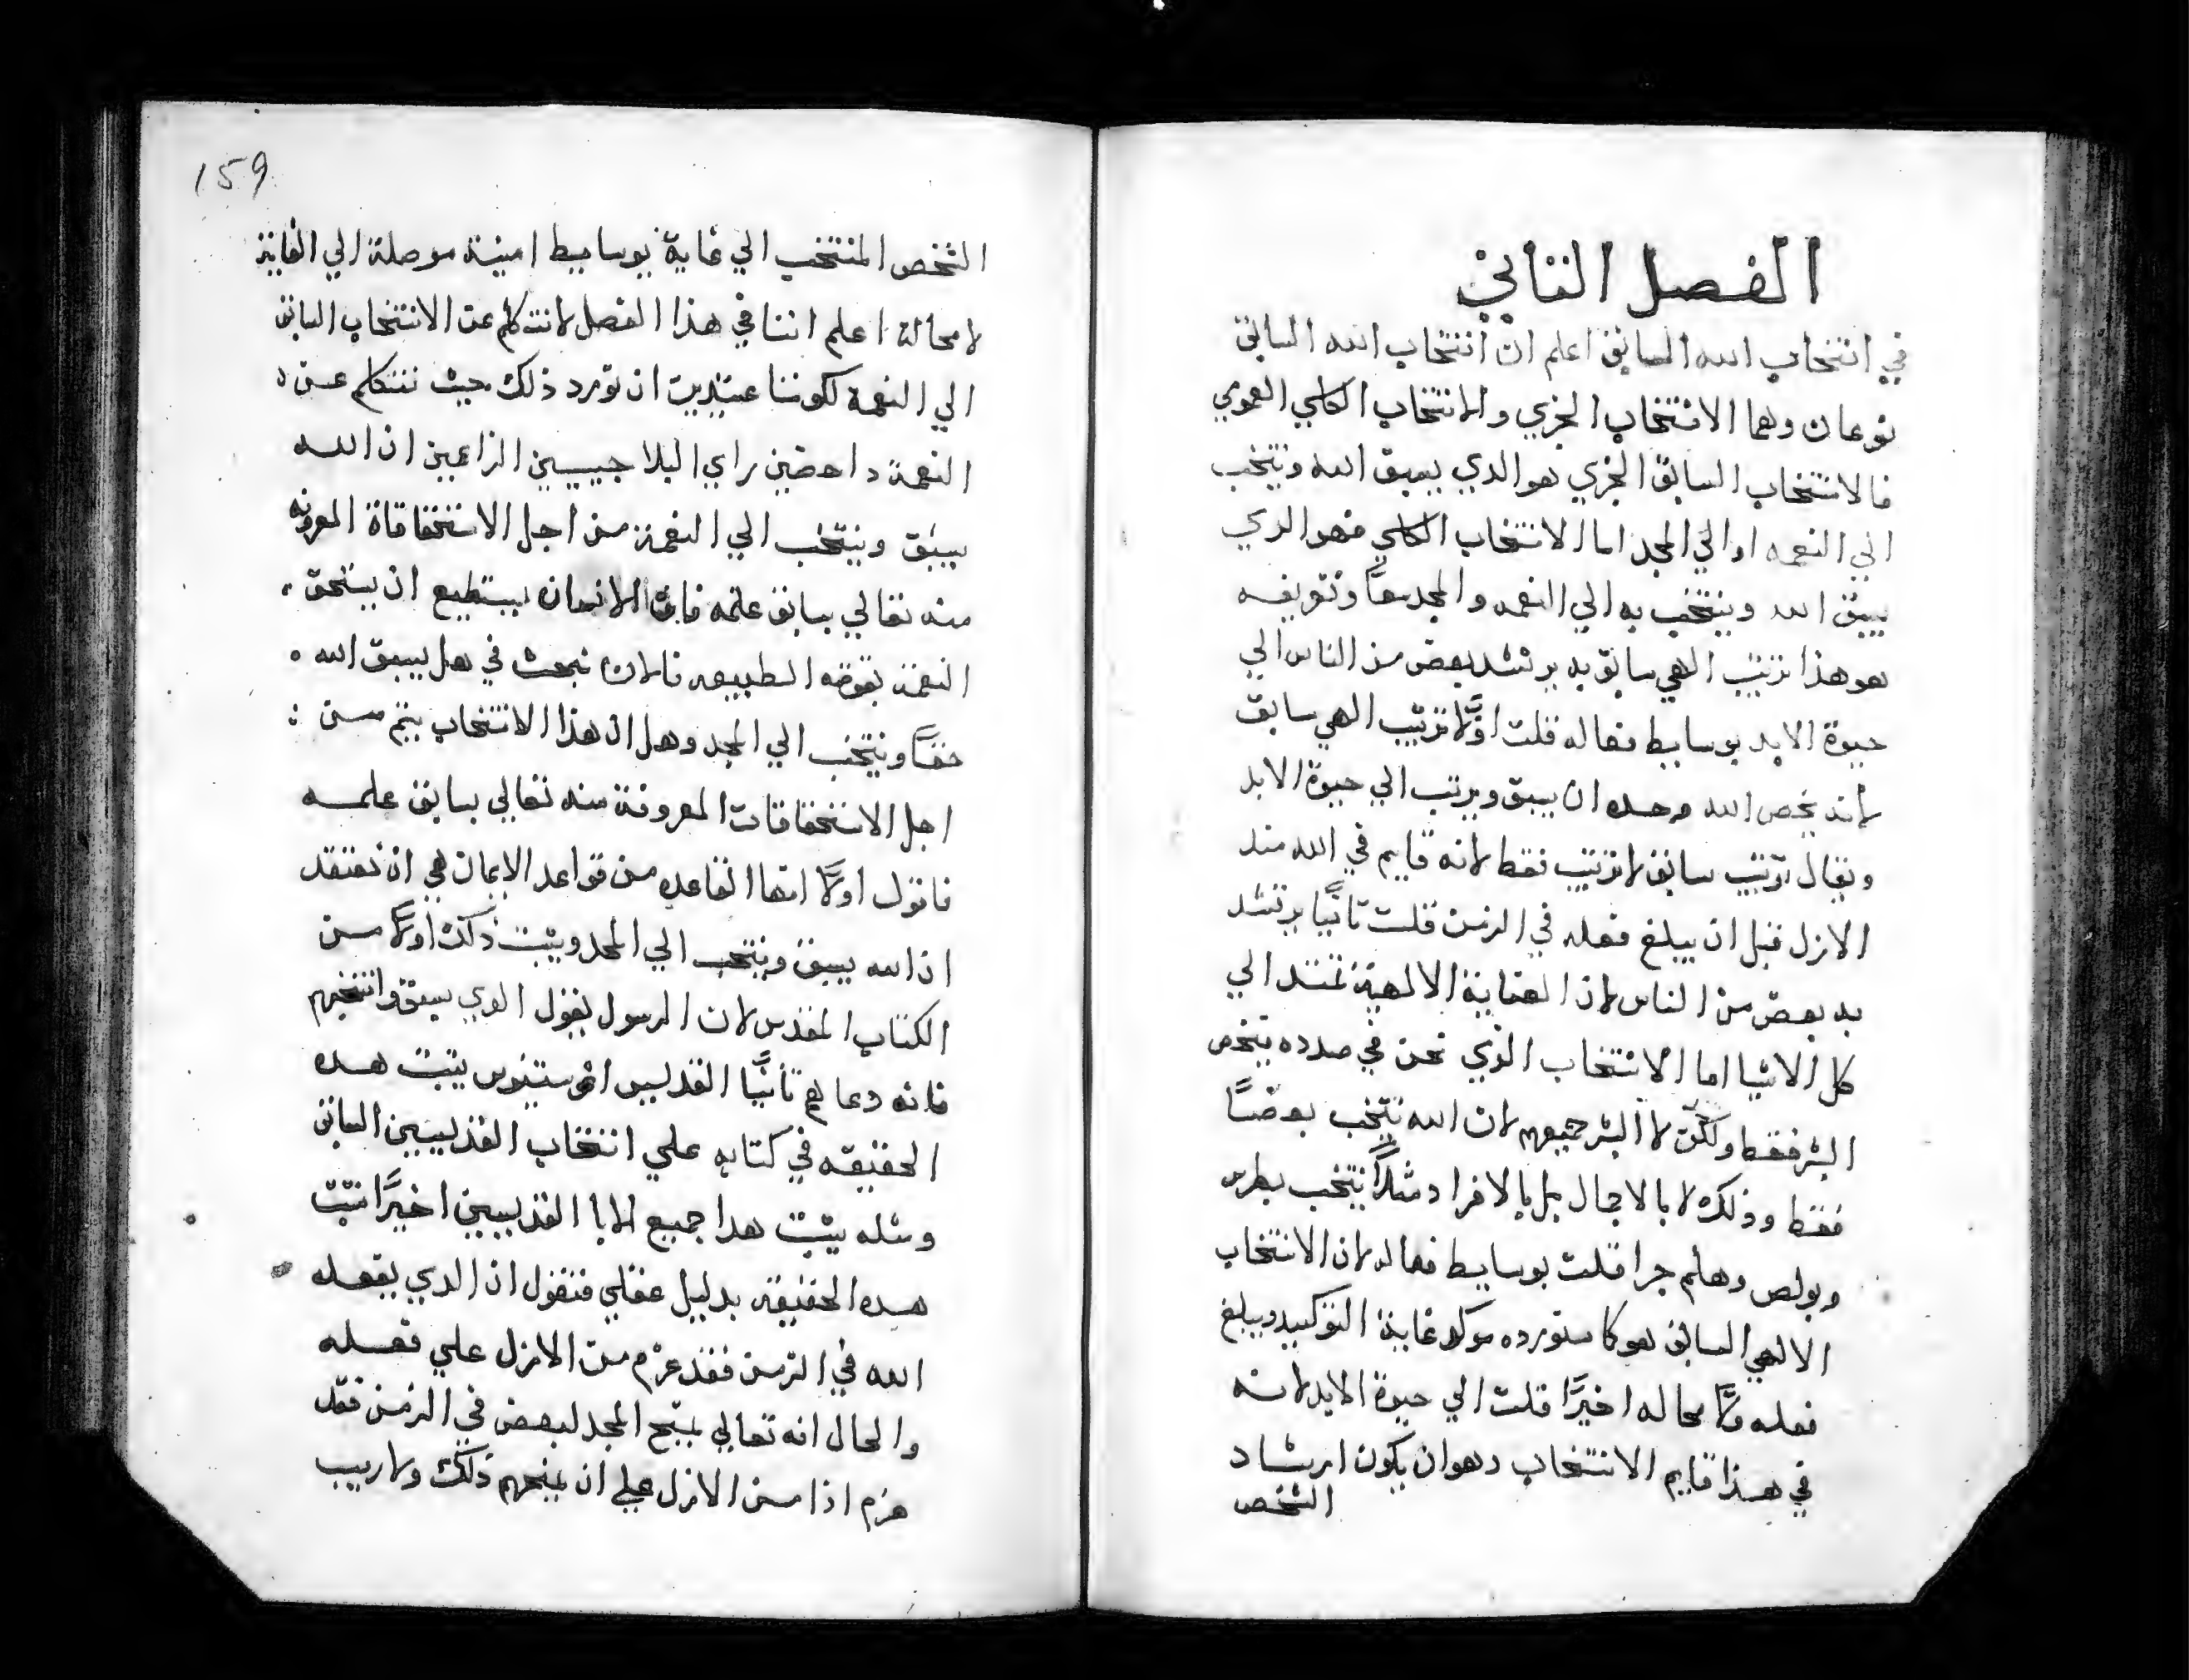 الفصل الثاني
في انتخاب الله السابق اعلم ان انتخاب الله السابق
نوعان وهما الانتخاب الجزي والانتخاب الكلي العموي
فالانتخاب السابق الجزي هو الدي يسبق الله وينتخب
الي النعمه او الي المجد اما الانتخاب الكلي فهو الدي
يسبق الله وينتخب به الي النعمه والمجد معًا وتعريفه
هو هذا ترتيب الهي سابق به يرتشد بعض من الناس الي
حيوة الابد بوسايط فعاله قلت اوًلا ترتيب الهي سابق
لانه يخص الله وحده ان يسبق ويرتب الي حيوة الابد
ويقال ترتيب سابق لا ترتيب فقط لانه قايم في الله مند
الازل قبل ان يبلغ فعله في الزمن قلت تانيًا يرتشد
به بعض من الناس لان العناية الالهية تمتد الي
كل الاشيا اما الانتخاب الذي نحن في صدده يخص
البشر فقط ولكن لا البشر جميعهم لان الله ينتخب بعضًا
فقط وذلك لا بالاجمال بل بالافراد مثلاً ينتخب بطرس
وبولص وهلم جرا قلت بوسايط فعاله لان الانتخاب
الالهي السابق هو كما ستورده موكد غاية التوكيد ويبلغ
فعله لا محاله اخيرًا قلت الي حيوة الابد لانه
في هذا قايم الانتخاب وهو ان يكون ارشاد
الشخص
159
الشخص المنتخب الي غاية بوسايط امينة موصلة الي الغاية
لا محالة اعلم اننا في هذا الفصل لا نتكلم عن الانتخاب السابق
الي النعمة لكوننا عتيدين ان نورد ذلك حيث نتكلم عن
النعمة داحضين راي البلاجيسيين الزاعمين ان الله
يسبق وينتخب الي النعمة من اجل الاستحقاقاة المعروفه
منه تعالي بسابق علمه فان الانسان يستطيع ان يستحق
النعمة بقوته الطبيعه فالان نبحث في هل يسبق الله
حقًا وينتخب الي المجد وهل ان هذا الانتخاب يتم من
اجل الاستحقاقات المعروفة منه تعالي بسابق علمه
فانول اولاً القاعده من قواعد الايمان هي ان نعتقد
ان الله يسبق وينتخب الي المجد ويثبت ذلك اولاً من
الكتاب المقدس لان الرسول يقول الذي سبق وانتخبهم
فانه دعاهم تانيًا القديس اغوستينوس يتبت هده
الحقيقه في كتابه علي انتخاب القديسين السابق
ومثله يثبت هدا جميع الابا القديسين اخيرًا تتبت
هده الحقيقة بدليل عقلي فنقول ان الدي يفعله
الله في الزمن فقد عزم من الازل علي فعله
والحال انه تعالي يمنح المجد لبعض في الزمن فقد
عزم اذا من الازل علي ان يمنحهم ذلك ولا ريب